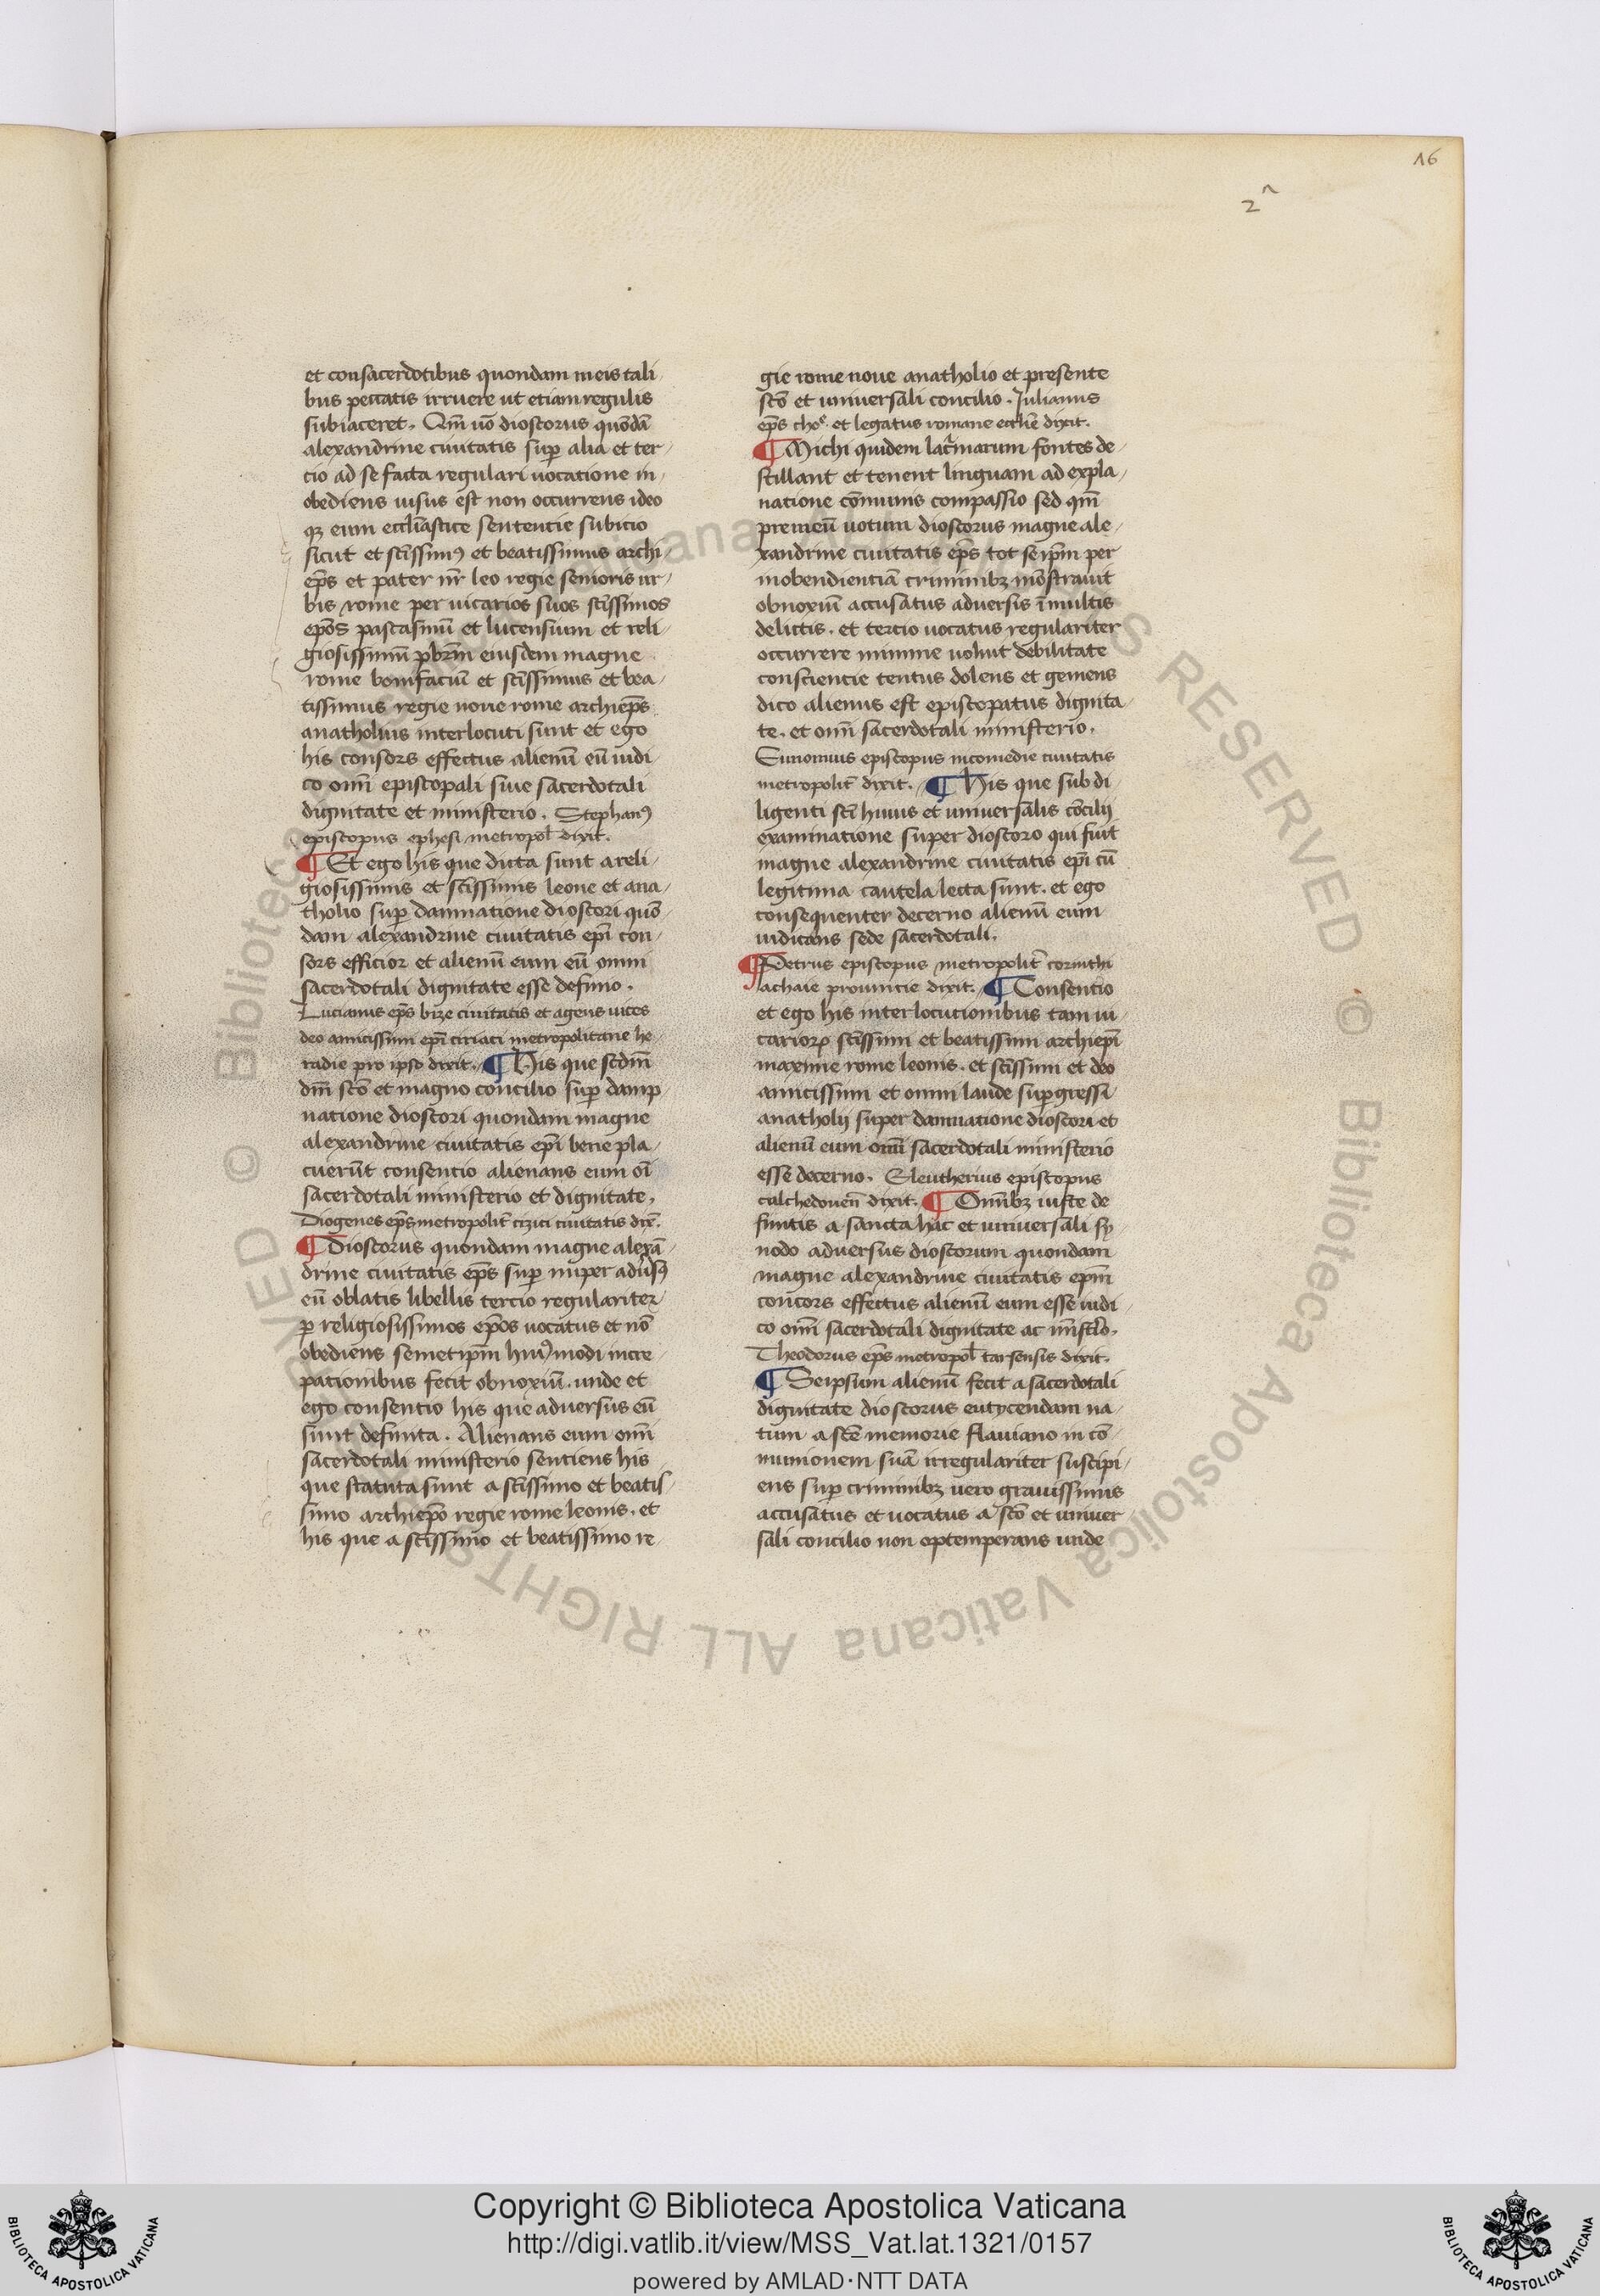 16
2ᵃ
et consacerdotibus quondam meis tali
bus peccatis irruere ut etiam regulis
subiaceret. Qm̄ uō dioscorus quōdā
alexandrine ciuitatis sup̱ alia et ter
cio ad se facta regulari uocatione in
obediens uisus est non occurrens ideo
qꝫ eum eccl̄iastice sentencie subicio
sicut et sc̄issimꝰ et beatissimus archi
ep̄s et pater nr̄ leo regie senioris ur
bis rome per uicarios suos sc̄issimos
ep̄os pascasinū et lucensium et reli
giosissimū pbr̄m eiusdem magne
rome bonifaciū et sc̄issimus et bea
tissimus regie noue rome archiep̄s
anatholius interlocuti sunt et ego
his consors effectus alienū eū iudi
co om̄i episcopali siue sacerdotali
dignitate et ministerio. Stephanꝰ
episcopus ephesi metropol̄ dixit.
¶ Et ego his que dicta sunt a reli
giosissimis et sc̄issimis leone et ana
tholio sup̱ damnatione dioscori quō
dam alexandrine ciuitatis ep̄i con
sors efficior et alienū eum eū omni
sacerdotali dignitate esse definio.
Lucianus ep̄s bize ciuitatis et agens uices
deo amicissimi ep̄i ciriaci metropolitane he
radie pro ipso dixit. ¶ His que scdm̄
dm̄ sc̄o et magno concilio sup̱ damp
natione dioscori quondam magne
alexandrine ciuitatis ep̄i bene pla
cuerūt consentio alienans eum oī
sacerdotali ministerio et dignitate.
Diogenes ep̄s metropolit̄ cizici ciuitatis dix̄.
¶ Dioscorus quondam magne alexā
drine ciuitatis ep̄s sup̱ nuper aduersꝰ
eū oblatis libellis tercio regulariter
ꝑ religiosissimos ep̄os uocatus et nō
obediens semetip̄m huiꝰmodi incre
pationibus fecit obnoxiū. unde et
ego consentio his que aduersus eū
sunt definita. Alienans eum om̄i
sacerdotali ministerio sentiens his
que statuta sunt a sc̄issimo et beatis
simo archiep̄o regie rome leonis. et
his que a sc̄issimo et beatissimo re
gie rome noue anatholio et presente
sc̄o et uniuersali concilio. Iulianus
ep̄s choꝰ. et legatus romane eccl̄ie dixit.
¶ Michi quidem lac̄marum fontes de
stillant et tenent linguam ad expla
natione cōmunis compassio sed qm̄
premeū uotum dioscorus magne ale
xandrine ciuitatis ep̄s tot seip̄m per
inobendientiā criminibꝫ mōstrauit
obnoxiū accusatus aduersis ī multis
delictis. et tercio uocatus regulariter
occurrere minime uoluit debilitate
consciencie tentus dolens et gemens
dico alienus est episcopatus dignita
te. et om̄i sacerdotali ministerio.
Eunomius episcopus nicomedie ciuitatis
metropolit̄ dixit. ¶ His que sub di
ligenti sc̄i huius et uniuersalis cōcilij
examinatione super dioscoro qui fuit
magne alexandrine ciuitatis ep̄i cū
legitima cautela lecta sunt. et ego
consequenter decerno alienū eum
iudicans sede sacerdotali.
¶ Petrus episcopus metropolit̄ corinthi
achaie prouincie dixit. ¶ Consentio
et ego his interlocutionibus tam ui
carioꝝ sc̄issimi et beatissimi archiep̄i
maxime rome leonis. et sc̄issimi et deo
amicissimi et omni laude sup̱gressi
anatholij super damnatione dioscori et
alienū eum om̄i sacerdotali ministerio
esse decerno. Eleutherius episcopus
calchedonen̄ dixit. ¶ Omībꝫ iuste de
finitis a sancta hac et uniuersali sy
nodo aduersus dioscorum quondam
magne alexandrine ciuitatis ep̄m
concors effectus alienū eum esse iudi
co om̄i sacerdotali dignitate ac mīst̄io.
Theodorus ep̄s metropol̄ tarsensis dixit.
¶ Seipsum alienū fecit a sacerdotali
dignitate dioscorus eutycendam na
tum a sc̄e memorie flauiano in cō
munionem suā irregulariter suscipi
ens sup̱ criminibꝫ uero grauissimis
accusatus et uocatus a sc̄o et uniuer
sali concilio non optemperans unde
Copyright © Biblioteca Apostolica Vaticana
http://digi.vatlib.it/view/MSS_Vat.lat.1321/0157
powered by AMLAD·NTT DATA
BIBLIOTECA APOSTOLICA VATICANA
BIBLIOTECA APOSTOLICA VATICANA
© Biblioteca Apostolica Vaticana ALL RIGHTS RESERVED © Biblioteca Apostolica Vaticana ALL RIGHTS RESERVED